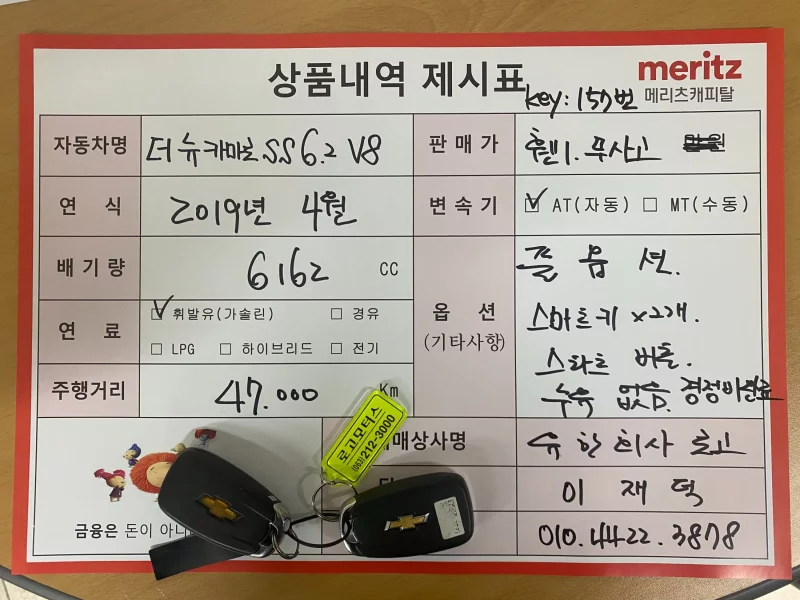 상품내역 제시표
meritz
메리츠캐피탈
key: 157번
자동차명 더 뉴 카마로 SS 6.2 V8
판매가 휀1. 무사고
연 식 2019년 4월
변속기 ☑ AT(자동) ☐ MT(수동)
배기량 6162 CC
연 료 ☑ 휘발유(가솔린) ☐ 경유
☐ LPG ☐ 하이브리드 ☐ 전기
주행거리 47.000 Km
옵 션
(기타사항)
풀 옵 션.
스마트키 x2개.
스타트 버튼.
누유 없슴. 경정비완료
매매상사명 유한회사 로고
이 재 덕
010.4422.3878
금융은 돈이 아니
로고모터스
(063)212-3000